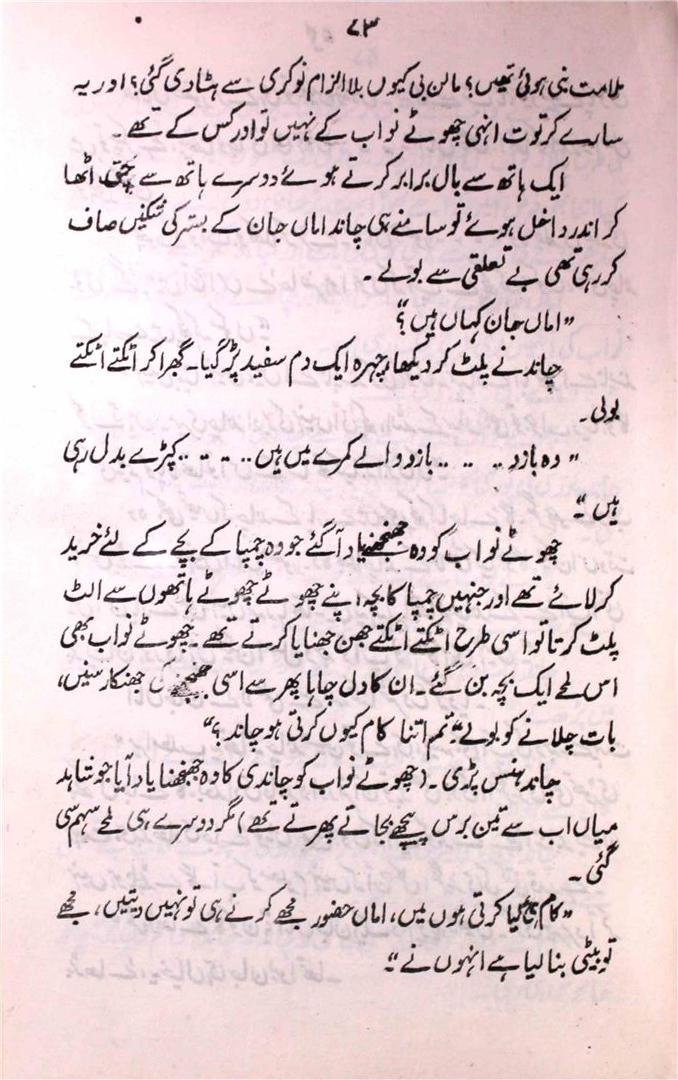 ۷۳
ملامت بنی ہوئی تھیں؟ مالن بی کیوں بلا الزام نوکری سے ہٹا دی گئی؟ اور یہ
سارے کرتوت انہی چھوٹے نواب کے نہیں تو اور کس کے تھے۔
ایک ہاتھ سے بال برابر کرتے ہوئے دوسرے ہاتھ سے چق اٹھا
کر اندر داخل ہوئے تو سامنے ہی چاند اماں جان کے بستر کی شکنیں صاف
کر رہی تھی بے تعلقی سے بولے۔
”اماں جان کہاں ہیں؟“
چاند نے پلٹ کر دیکھا، چہرہ ایک دم سفید پڑ گیا۔ گھبرا کر اٹکتے اٹکتے
بولی۔
”وہ بازو .. .. .. بازو والے کمرے میں ہیں .. .. .. کپڑے بدل رہی
ہیں“۔
چھوٹے نواب کو وہ جھنجھنے یاد آگئے جو وہ چمپا کے بچے کے لئے خرید
کر لائے تھے اور جنہیں چمپا کا بچہ اپنے چھوٹے چھوٹے ہاتھوں سے الٹ
پلٹ کرتا تو اسی طرح اٹکتے اٹکتے جھن جھنایا کرتے تھے۔ چھوٹے نواب بھی
اس لمحے ایک بچہ بن گئے۔ ان کا دل چاہا پھر سے اسی جھنجھنے کی جھنکار سنیں،
بات چلانے کو بولے ”تم اتنا کام کیوں کرتی ہو چاند؟“
چاند ہنس پڑی۔ (چھوٹے نواب کو چاندی کا وہ جھنجھنا یاد آیا جو شاہد
میاں اب سے تین برس پیچھے بجاتے پھرتے تھے) مگر دوسرے ہی لمحے سہم سی
گئی۔
”کام ہی کیا کرتی ہوں میں، اماں حضور مجھے کرنے ہی تو نہیں دیتیں، مجھے
تو بیٹی بنا لیا ہے انہوں نے“۔